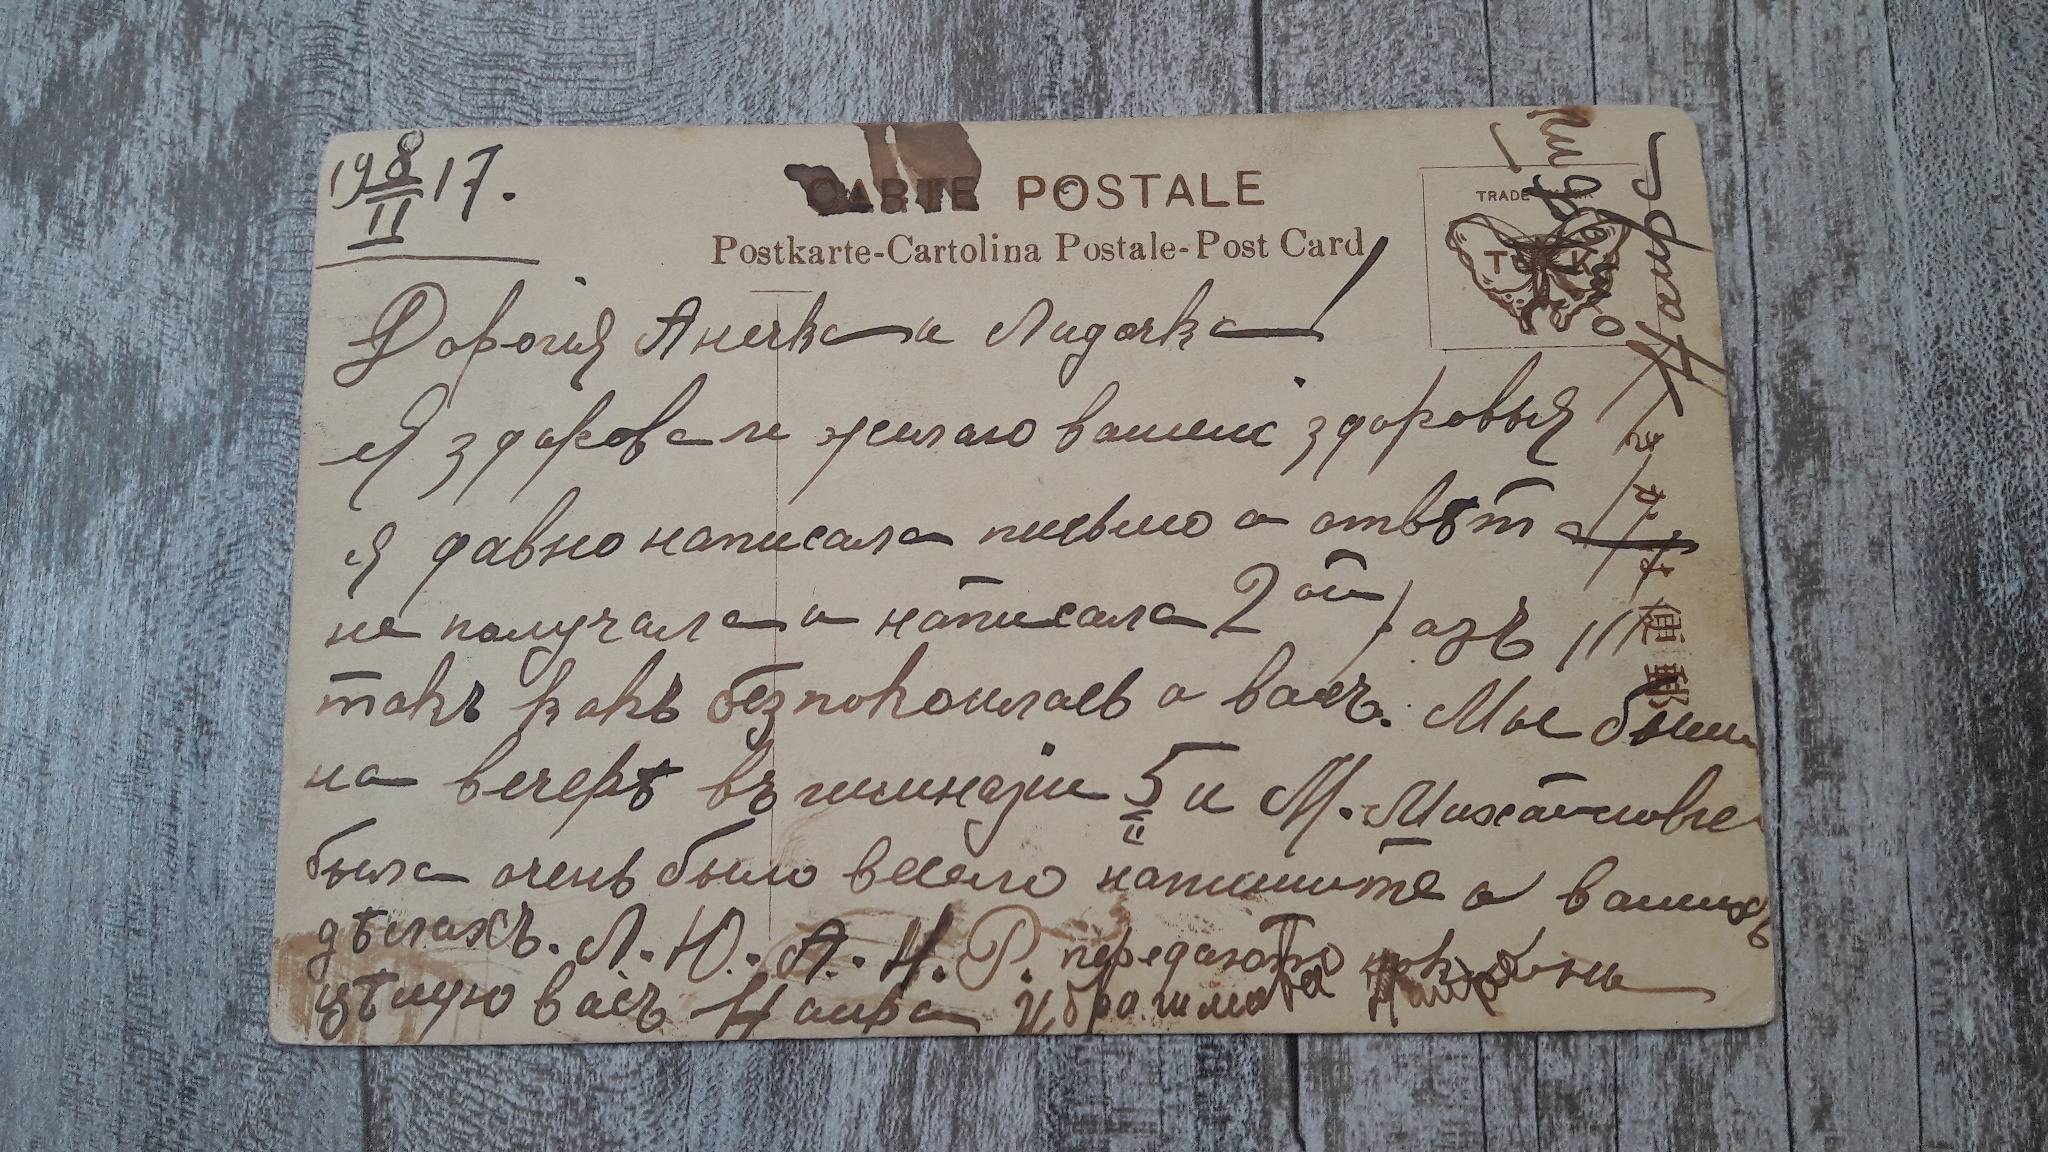 19 8/II 17.
CARTE POSTALE
Postkarte-Cartolina Postale-Post Card
TRADE MARK
Дорогія Анечка и Лидочка!
Я здорова и желаю вашихъ здоровья
я давно написала письмо а отвѣт а
не получала и написала 2 ой разъ !!!
такъ какъ безпокоилась о васъ. Мы были
на вечерѣ въ гимназіи 5/II и М. Михайловне
была очень было весело напишите о вашихъ
дѣлахъ. Л. Ю. А. Н. Р. передаютъ поклоны
цѣлую васъ Наира
Наира
便郵